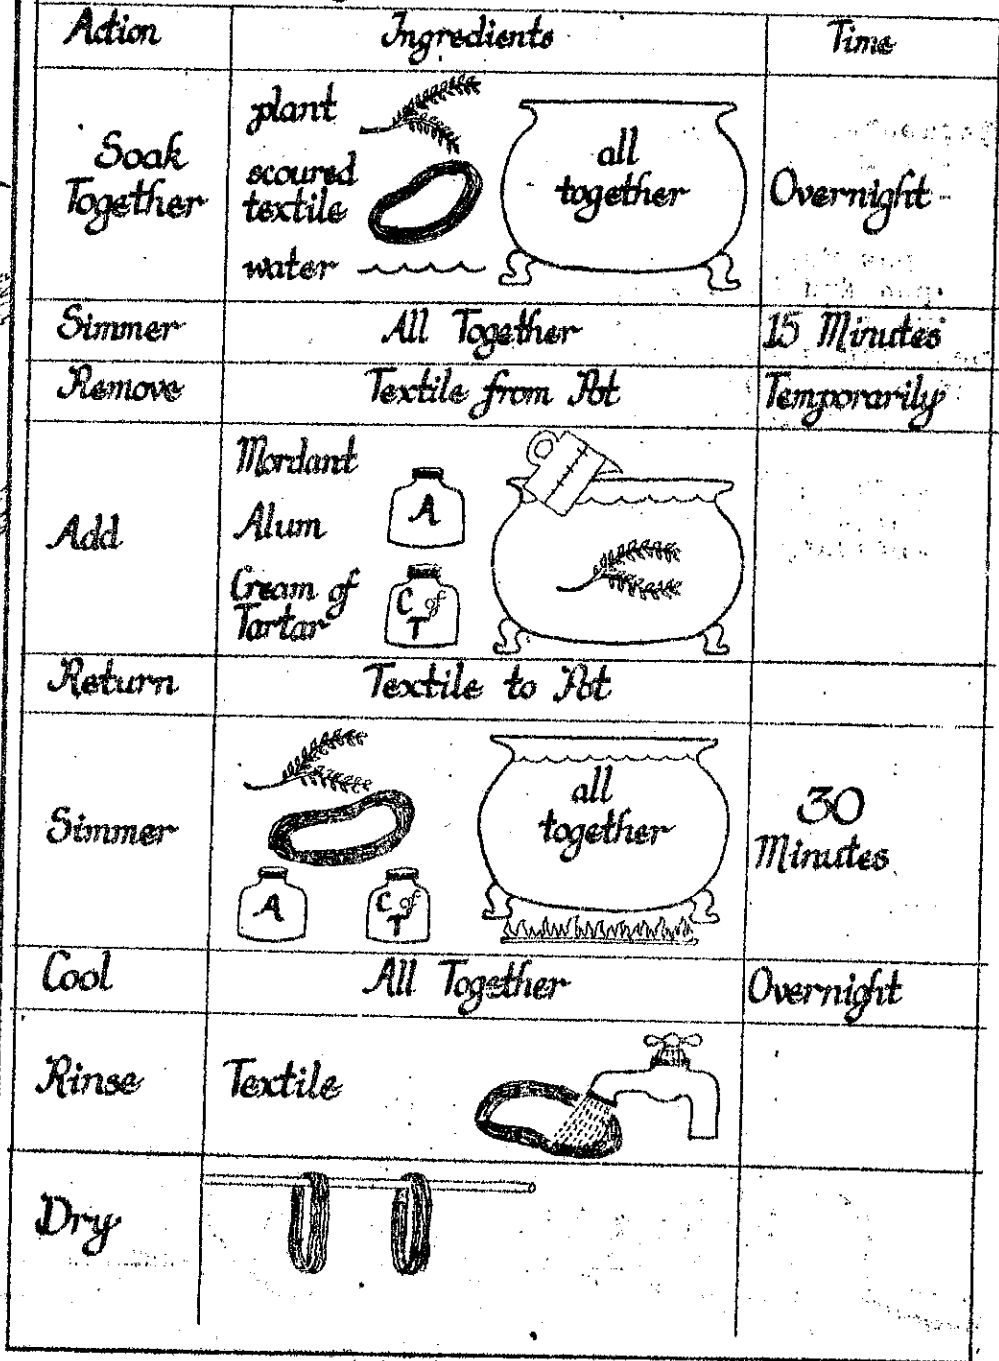 Action Ingredients Time
plant
Soak
Together
scoured
textile
water
all
together
Overnight
Simmer All Together 15 Minutes
Remove Textile from Pot Temporarily
Add
Mordant
Alum
A
Cream of
Tartar
C of
T
Return Textile to Pot
Simmer
A
C of
T
all
together
30
Minutes
Cool All Together Overnight
Rinse Textile
Dry